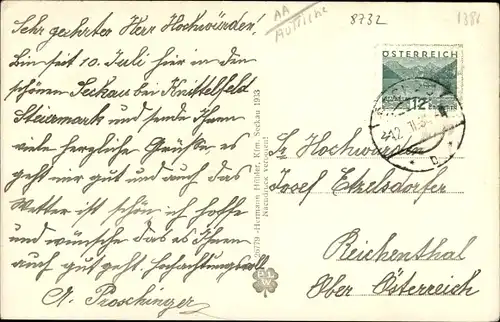 Sehr geehrter Herr Hochwürden!
Bin seit 10. Juli hier in den
schönen Seckau bei Knittelfeld
Steiermark und sende Ihnen
viele herzliche Grüße es
geht mir gut und auch das
Wetter ist schön ich hoffe
und wünsche das es Ihnen
auch gut geht. Hochachtungsvoll
A. Proschinger
AA
8732
1386
ÖSTERREICH
12
Sr Hochwürden
Josef Etzelsdorfer
Reichenthal
Ober Österreich
26779 - Hermann Hübler, Kfm. Seckau 1933
Nachdruck verboten!
P.L.W.